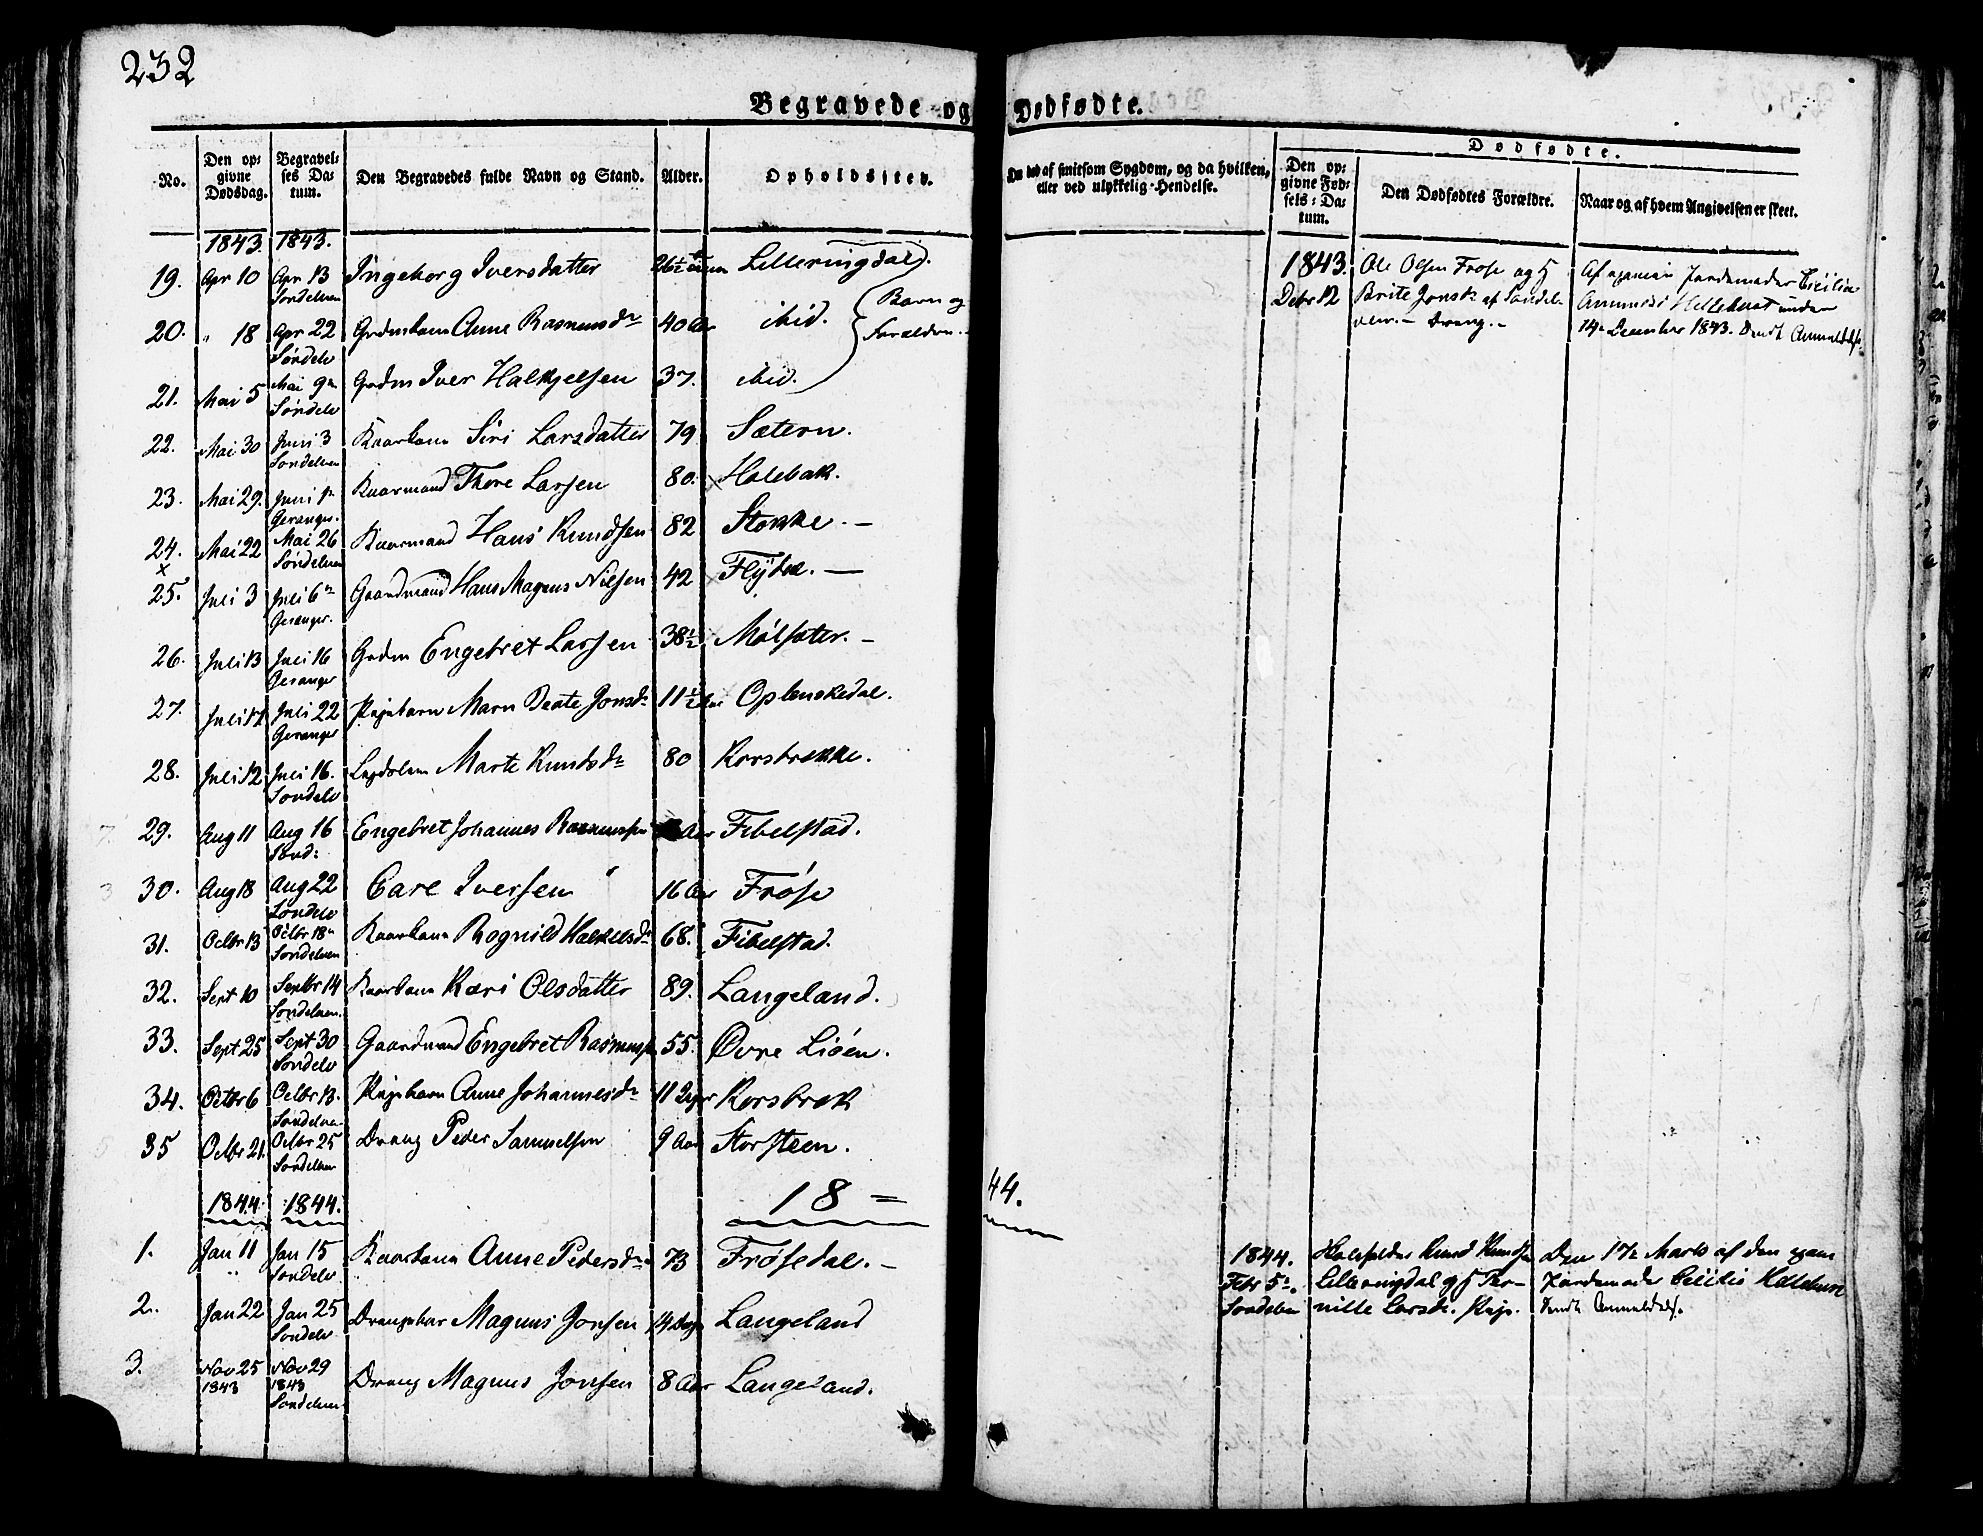 232
Begravede og Dødfødte.
No.
Den opgivne Dødsdag.
Begravelses Datum.
Den Begravedes fulde Navn og Stand.
Alder.
Opholdssted.
Om død af smitsom Sygdom, og da hvilken, eller ved ulykkelig Hendelse.
Dødfødte.
Den opgivne Fødsels-Datum.
Den Dødfødtes Forældre.
Naar og af hvem Angivelsen er skeet.
1843. 1843.
19. Apr 10 Apr 13 Søndelven Ingeborg Iversdatter 26½ Lilleringdal.
20. " 18 Apr 22 Søndelv Grdmkone Anne Rasmusdr 40 Aar ibid. Barn og Forældre.
21. Mai 5 Mai 9de Søndelv Grdm Iver Halkjelsen 37. ibid.
22. Mai 30 Juni 3 Søndelven Kaarkone Siri Larsdatter 79 Sætern.
23. Mai 29. Juni 1ste Geranger. Kaarmand Thore Larsen 80. Holebak.
24. Mai 22 Mai 26 Søndelven Kaarmand Hans Knudsen 82 Stokke. —
x
25. Juli 3 Juli 6te Geranger. Gaardmand Hans Magnus Nilsen 42 Flydal. —
26. Juli 13 Juli 16 Geranger Grdm Engebret Larsen 38½ Mølsæter. —
27. Juli 17 Juli 22 Geranger Pigebarn Marn Beate Jonsdr 11½ Aar Oplenskedal.
28. Juli 12 Juli 16. Søndelv Lægdslem Marte Knudsdr 80 Korsbrekke.
29. Aug 11 Aug 16 Sønd: Engebret Johannes Rasmussen Aar Fibelstad.
30. Aug 18 Aug 22 Søndelv Carl Iversen 16 Aar Frøse
31. Octbr 13 Octbr 18de Søndelven Kaarkone Ragnild Halkelsdr 68. Fibelstad.
32. Sept 10 Septbr 14 Søndelven. Kaarkone Kari Olsdatter 89. Langeland.
33. Sept 25 Sept 30 Søndelv Gaardmand Engebret Rasmussen 55. Øvre Liøen.
34. Octbr 6 Octbr 13. Søndelven Pigebarn Anne Johannesdr 11 Uger Korsbrek
35 Octbr 21. Octbr 25 Søndelven Dreng Peder Samuelsen 9 Aar Storsteen.
1844. 1844. 18 = 44.
1. Jan 11 Jan 15 Søndelv Kaarkone Anne Pedersdr 73 Frøsedal. —
2. Jan 22 Jan 25 Søndelv. Drengebar Magnus Jonsen 14 Dage Langeland
3. Nov 25 1843 Nov 29 1843 Søndelven Dreng Magnus Jonsen 8 Aar Langeland.
1843.
Decbr 12
Ole Olsen Frøse og H
Brite Jonsdr af Søndel-
ven. — Dreng. —
Af examin Jordemoder Cicilia
Hellebust under
14de December 1843. Anmeldelse.
1844.
Febr 5te.
Søndelven
Knud Knudsen
Lilleringdal og H Per-
nille Larsdr. Pige.
Den 17de Marts af den exam
Jordemoder Cicilia Hellebust
Anmeldelse.